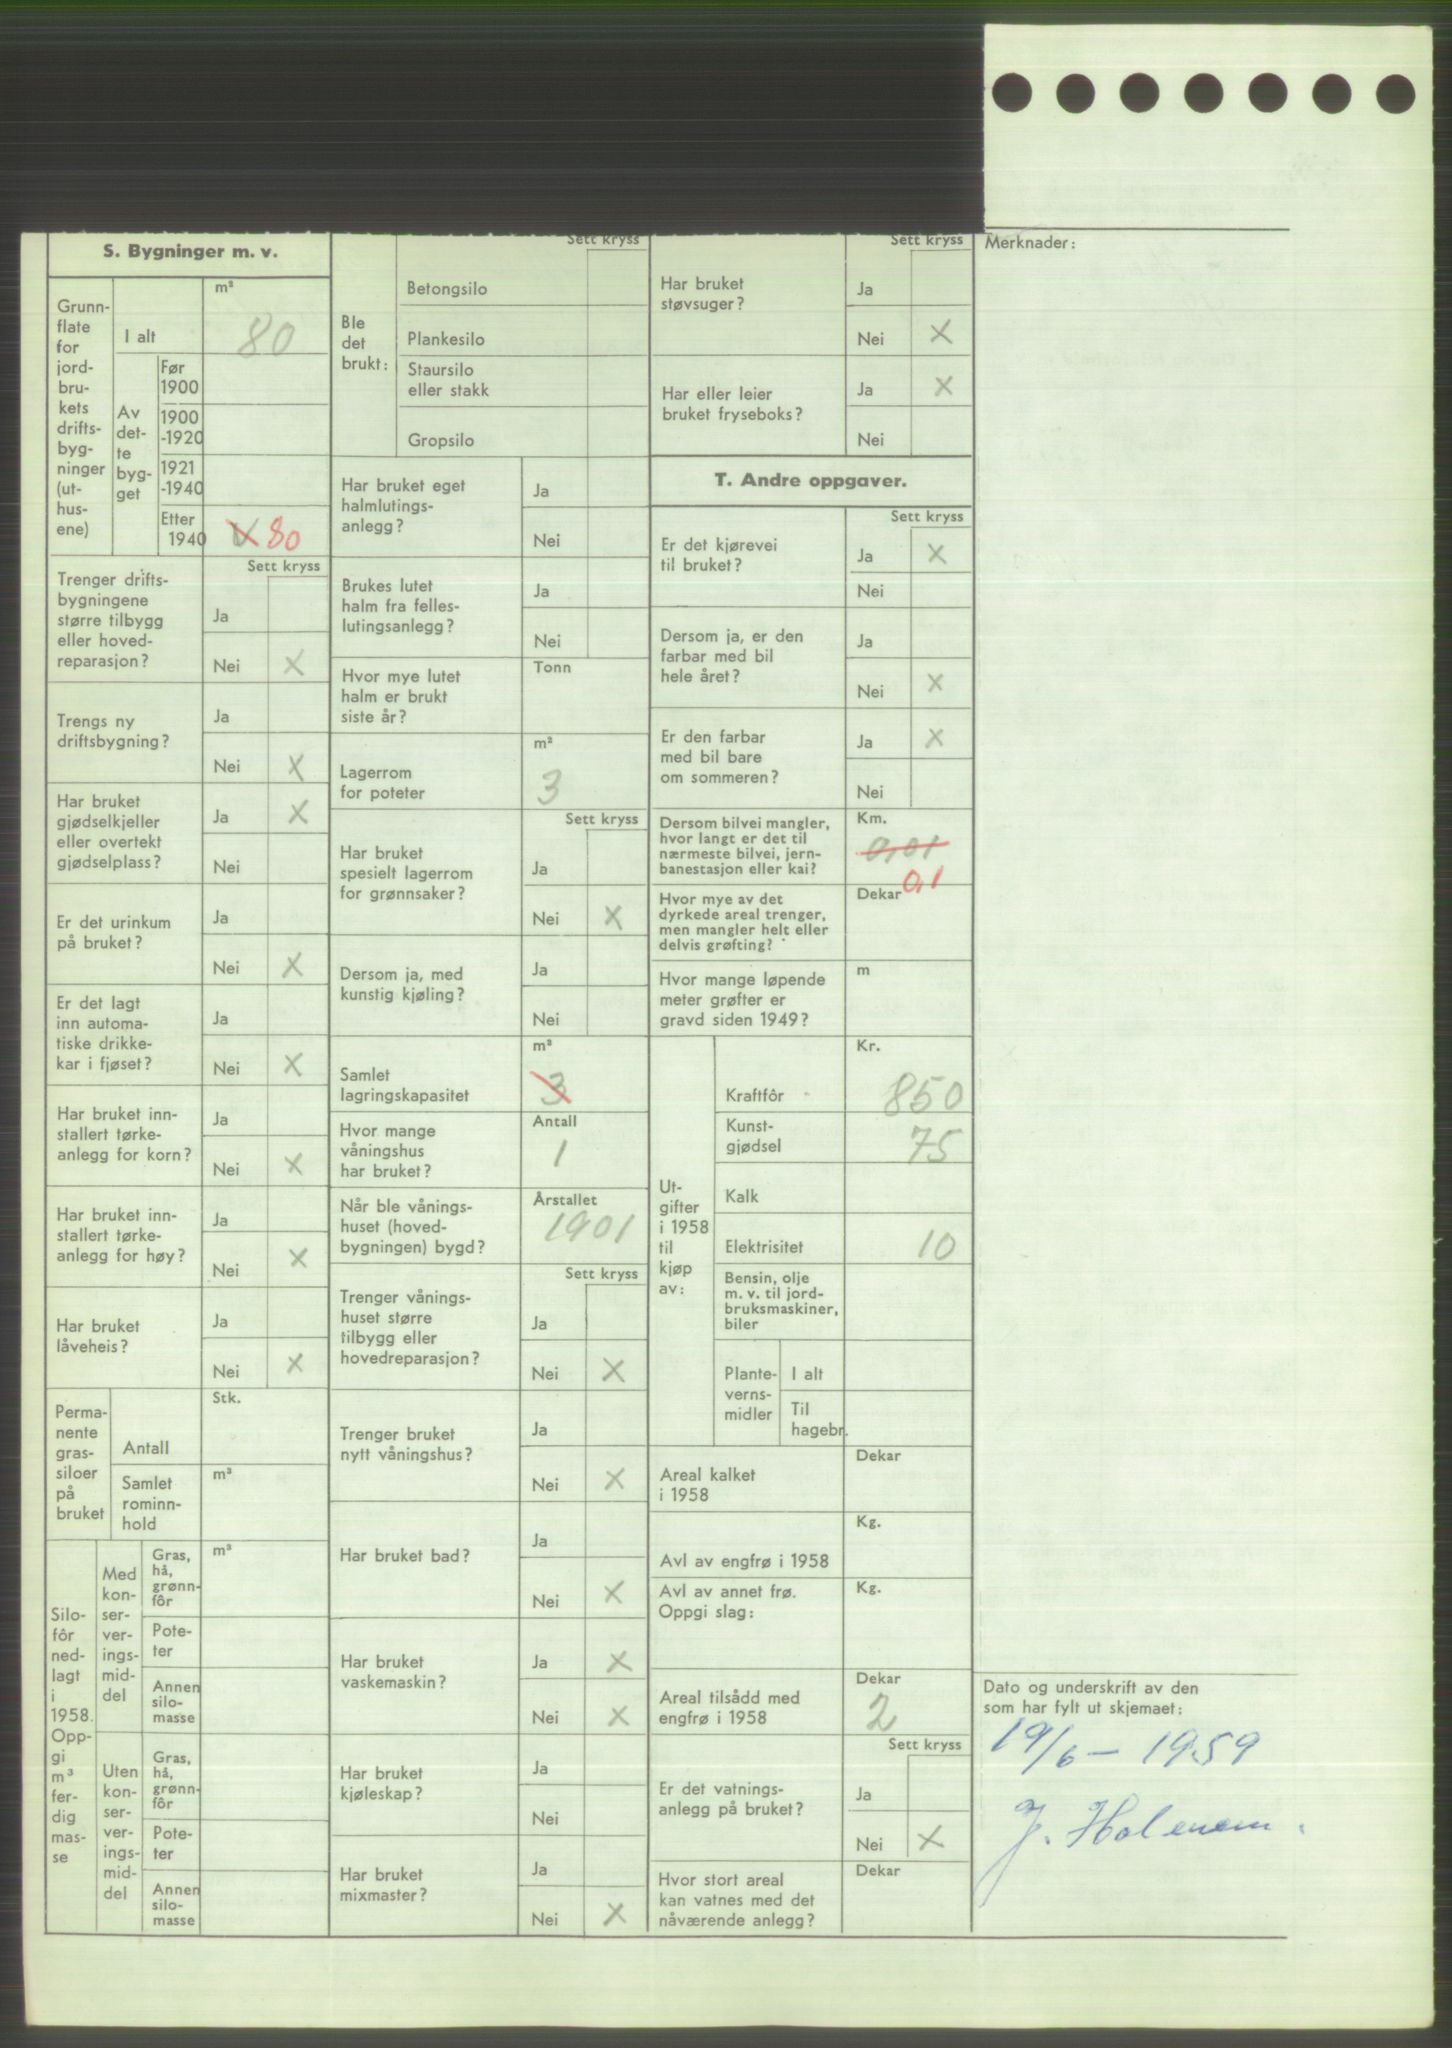 S. Bygninger m. v.
Grunn-
flate
for
jord-
bru-
kets
drifts-
byg-
ninger
(ut-
hus-
ene)
I alt
m²
80
Av
det-
te
byg-
get
Før
1900
1900
-1920
1921
-1940
Etter
1940
X 80
Sett kryss
Trenger drifts-
bygningene
større tilbygg
eller hoved-
reparasjon?
Ja
Nei X
Trengs ny
driftsbygning?
Ja
Nei X
Har bruket
gjødselkjeller
eller overtekt
gjødselplass?
Ja X
Nei
Er det urinkum
på bruket?
Ja
Nei X
Er det lagt
inn automa-
tiske drikke-
kar i fjøset?
Ja
Nei X
Har bruket inn-
stallert tørke-
anlegg for korn?
Ja
Nei X
Har bruket inn-
stallert tørke-
anlegg for høy?
Ja
Nei X
Har bruket
låveheis?
Ja
Nei X
Perma-
nente
gras-
siloer
på
bruket
Antall
Stk.
Samlet
rominn-
hold
m³
Silo-
fôr
ned-
lagt
i
1958.
Opp-
gi
m³
fer-
dig
mas-
se
Med
kon-
ser-
ver-
ings-
mid-
del
Gras,
hå,
grønn-
fôr
m³
Pote-
ter
Annen
silo-
masse
Uten
kon-
ser-
ver-
ings-
mid-
del
Gras,
hå,
grønn-
fôr
Pote-
ter
Annen
silo-
masse
Ble
det
brukt:
Sett kryss
Betongsilo
Plankesilo
Staursilo
eller stakk
Gropsilo
Har bruket eget
halmlutings-
anlegg?
Ja
Nei
Brukes lutet
halm fra felles-
lutingsanlegg?
Ja
Nei
Hvor mye lutet
halm er brukt
siste år?
Tonn
Lagerrom
for poteter
m²
3
Sett kryss
Har bruket
spesielt lagerrom
for grønnsaker?
Ja
Nei X
Dersom ja, med
kunstig kjøling?
Ja
Nei
Samlet
lagringskapasitet
m²
3
Hvor mange
våningshus
har bruket?
Antall
1
Når ble vånings-
huset (hoved-
bygningen) bygd?
Årstallet
1901
Sett kryss
Trenger vånings-
huset større
tilbygg eller
hovedreparasjon?
Ja
Nei X
Trenger bruket
nytt våningshus?
Ja
Nei X
Har bruket bad?
Ja
Nei X
Har bruket
vaskemaskin?
Ja X
Nei X
Har bruket
kjøleskap?
Ja
Nei
Har bruket
mixmaster?
Ja
Nei X
Sett kryss
Har bruket
støvsuger?
Ja
Nei X
Har eller leier
bruket fryseboks?
Ja X
Nei
T. Andre oppgaver.
Sett kryss
Er det kjørevei
til bruket?
Ja X
Nei
Dersom ja, er den
farbar med bil
hele året?
Ja
Nei X
Er den farbar
med bil bare
om sommeren?
Ja X
Nei
Dersom bilvei mangler,
hvor langt er det til
nærmeste bilvei, jern-
banestasjon eller kai?
Km.
0,01
0,1
Hvor mye av det
dyrkede areal trenger,
men mangler helt eller
delvis grøfting?
Dekar
Hvor mange løpende
meter grøfter er
gravd siden 1949?
m
Ut-
gifter
i 1958
til
kjøp
av:
Kr.
Kraftfôr 850
Kunst-
gjødsel 75
Kalk
Elektrisitet 10
Bensin, olje
m. v. til jord-
bruksmaskiner,
biler
Plante-
verns-
midler
I alt
Til
hagebr.
Areal kalket
i 1958
Dekar
Avl av engfrø i 1958
Kg.
Avl av annet frø.
Oppgi slag:
Kg.
Areal tilsådd med
engfrø i 1958
Dekar
2
Sett kryss
Er det vatnings-
anlegg på bruket?
Ja
Nei X
Hvor stort areal
kan vatnes med det
nåværende anlegg?
Dekar
Merknader:
Dato og underskrift av den
som har fylt ut skjemaet:
19/6 - 1959
J. Holmem.